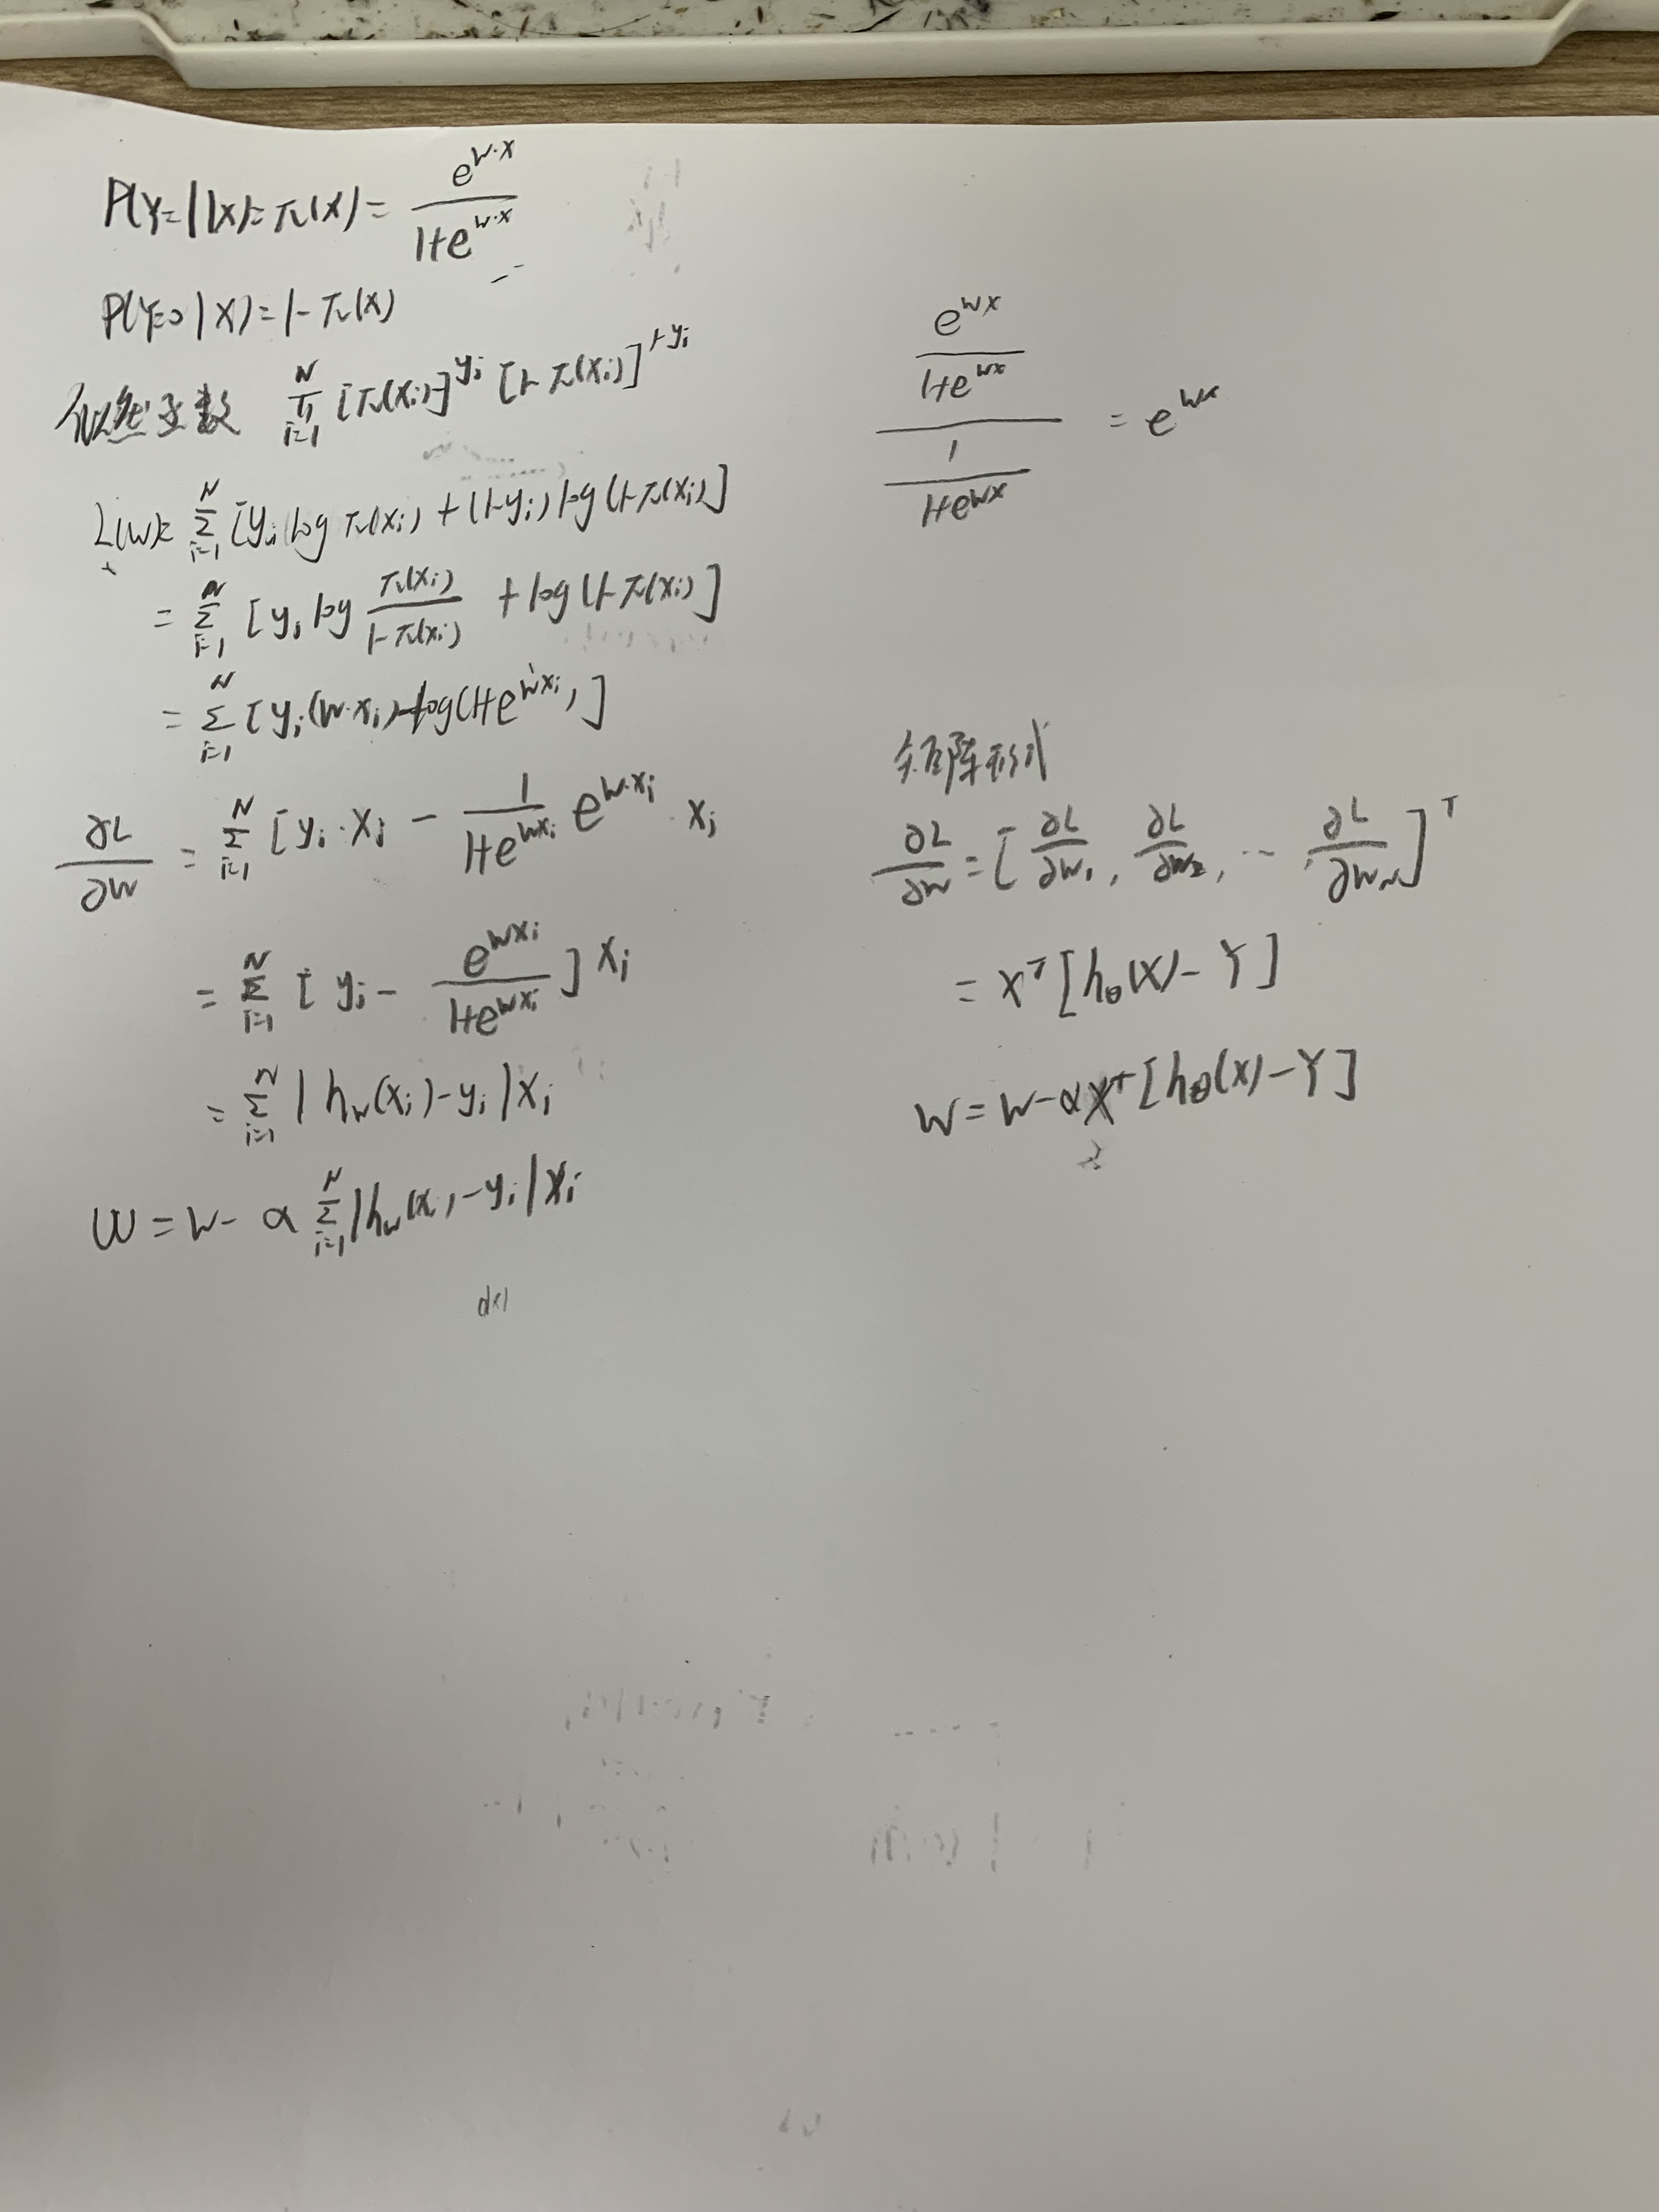 P(Y=1|X)=π(X)= e^{w·x} / (1+e^{w·x})
P(Y=0|X)=1-π(X)
似然函数 ∏_{i=1}^{N} [π(x_i)]^{y_i} [1-π(x_i)]^{1-y_i}
L(w)= Σ_{i=1}^{N} [y_i log π(x_i) + (1-y_i) log(1-π(x_i)]
= Σ_{i=1}^{N} [y_i log π(x_i) / (1-π(x_i)) + log(1-π(x_i)]
= Σ_{i=1}^{N} [y_i(w·x_i)-log(1+e^{w·x_i})]
∂L/∂w = Σ_{i=1}^{N} [y_i·x_i - 1/(1+e^{wx_i}) e^{w·x_i}·x_i
= Σ_{i=1}^{N} [y_i - e^{wx_i} / (1+e^{wx_i})] x_i
= Σ_{i=1}^{N} |h_w(x_i)-y_i|x_i
w = w- α Σ_{i=1}^{N} |h_w(x_i)-y_i|x_i
(e^{wx} / (1+e^{wx})) / (1 / (1+e^{wx})) = e^{wx}
矩阵形式
∂L/∂w = [∂L/∂w_1, ∂L/∂w_2, ... ∂L/∂w_N]^T
= X^T [h_θ(X)-Y]
W = W-αX^T [h_θ(X)-Y]